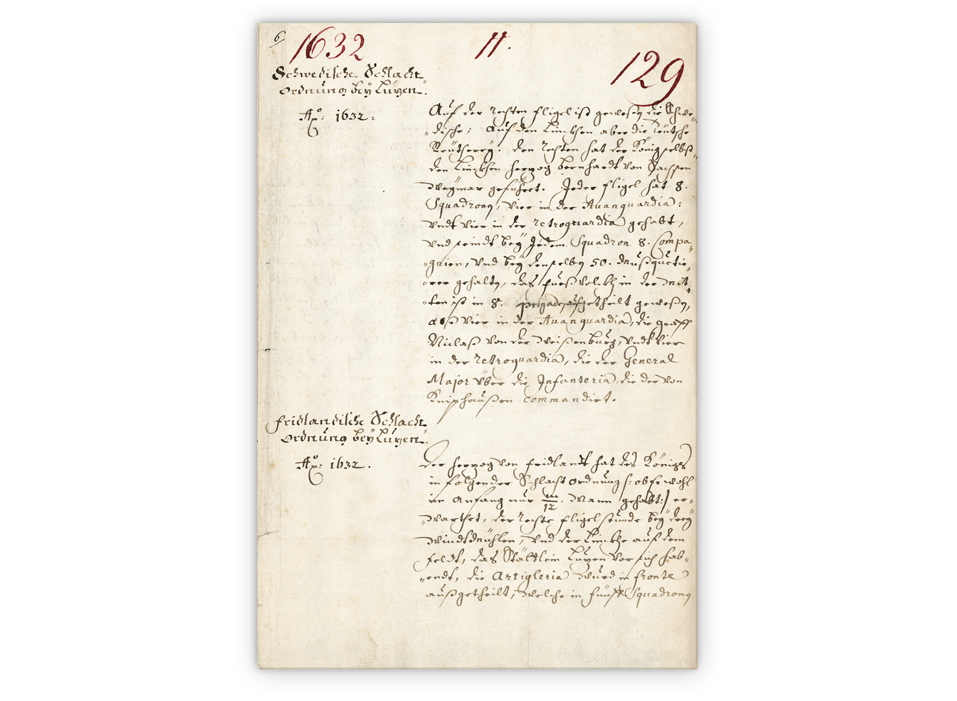 6
1632
11.
129
Schwedische Schlacht
Ordnung bey Lützen.
Aō: 1632:
Auf der rechten fligel ist gewesen die Schwe-
dische; Auf den Linckhen aber die teutsche
Reütterey. den rechten hat der König selbst
den Linckhen herzog bernhardt von Sachsen
Weymar geführet. Jeder fligel hat 8.
Squadrony, vier in der Auanguardia:
vndt vier in der retroguardia gehabt,
vnd seindt bey Jedem Squadron 8. Compa-
gnien, vnd bey denselben 50. Mußqueti-
rer gehalten, das fuesvolckh in der mit-
ten ist in 8. prigaden ausgetheilt gewesen,
als vier in der Auanguardia, die graff
Niclaß von der Weissenburg, vndt vier
in der retroguardia, die der General
Major über die Infanteria, die der von
Kniphausen commandirt.
fridlandische Schlacht
Ordnung bey Lützen.
Aō: 1632.
Der herzog von fridlandt hat des Königs
in folgender Schlacht Ordnung (: obschon wohl
im Anfang nur m/12. Mann gehabt:) er-
warthet, der rechte fligel stunde bey den
Windtmühlen, vnd der Linckhe auf dem
feldt, das Stättlein Lützen vor sich hab-
endt, die Artigleria wurd in fronte
außgetheilt, welche in fünff Squadrony